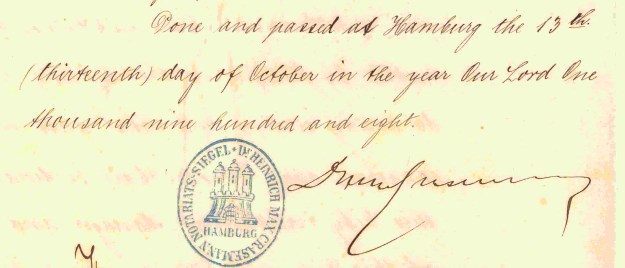 Done and passed at Hamburg the 13th.
(thirteenth) day of October in the year Our Lord One
thousand nine hundred and eight.
NOTARIATS-SIEGEL • Dr HEINRICH MAX CRASEMANN
HAMBURG